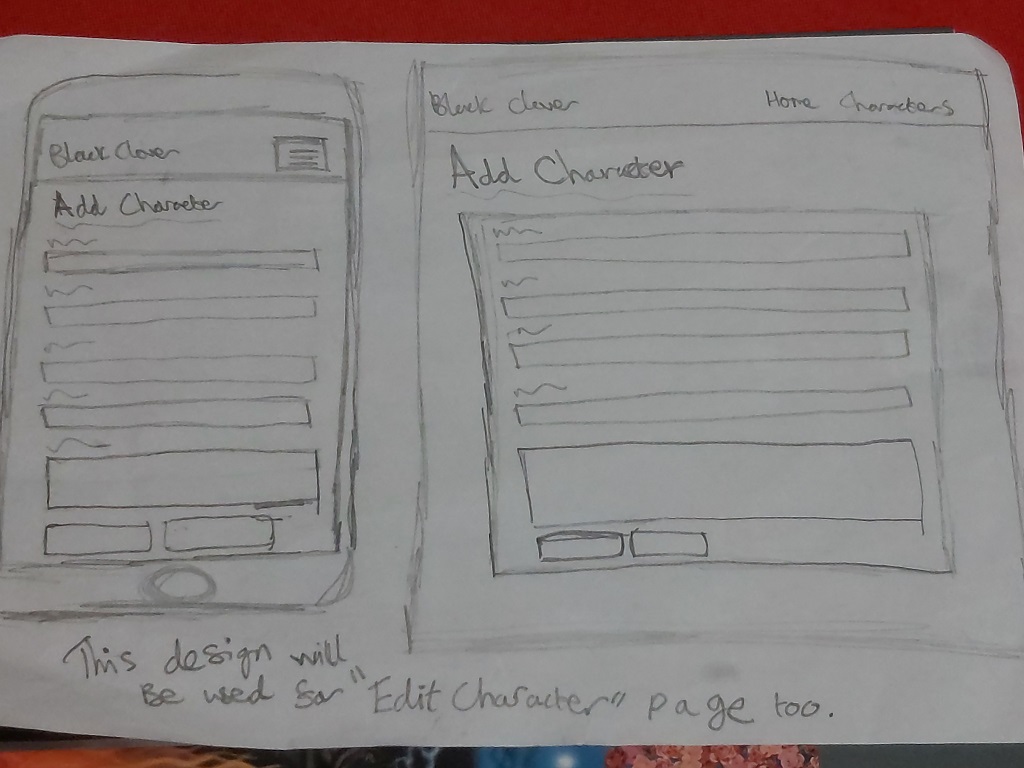 Black Clover
Add Character
Black Clover
Home Characters
Add Character
This design will
Be used for "Edit Character" page too.